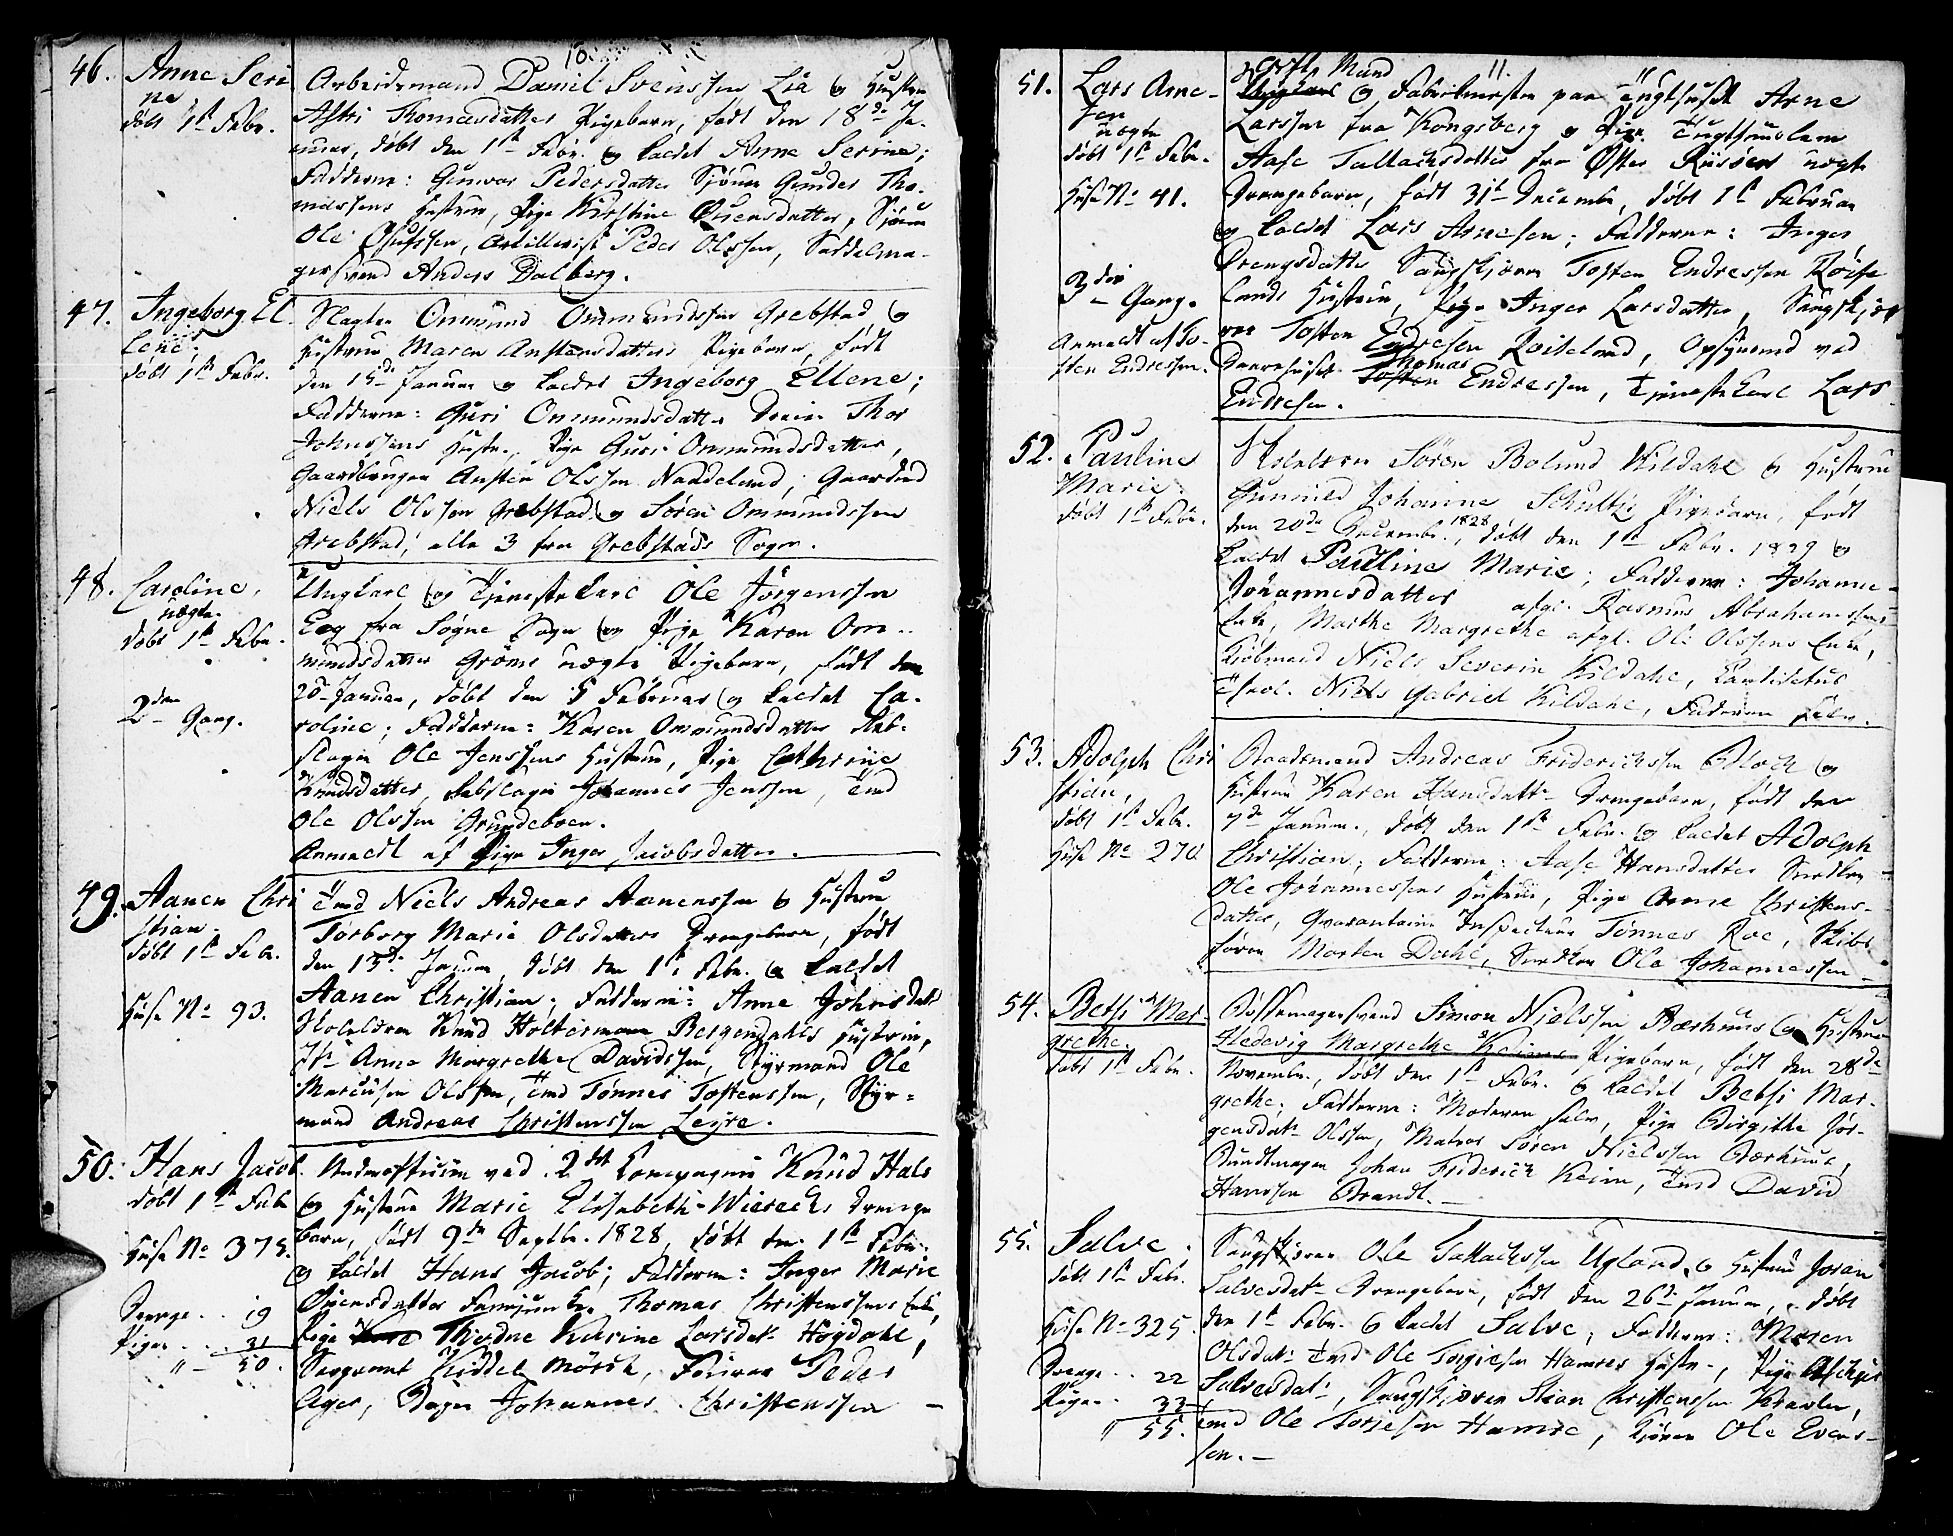 10.
46.
Anne Seri
ne
døbt 1ste Febr.
Arbeidsmand Daniel Svenssen Lia og Hustru
Astri Thomasdatters Pigebarn, født den 18de Ja-
nuar, døbt den 1ste Febr. og kaldet Anne Serine;
Fadderne: Gunvor Pedersdatter Sjøm Gunder Tho-
massens Hustru, Pige Kirstine Ouensdatter, Sjøm
Ole Olufssen, Artillerist Peder Olssen, Saddelma-
gersvend Anders Dalberg.
47.
Ingeborg El
lene,
døbt 1ste Febr.
Slagter Ommund Ommundssen Grebstad og
Hustru Maren Anstensdatters Pigebarn, født
den 15de Januar og kaldet Ingeborg Ellene;
Fadderne: Guri Ommundsdatter Thor
Johnssens Hustr., Pige Guri Ommundsdatter,
Gaardbruger Austen Olssen Naadeland, Gaardmd
Niels Olssen Grebstad og Søren Ommundssen
Grebstad, alle 3 fra Grebstads Sogn.
48.
Caroline,
uægte.
døbt 1ste Febr.
2den Gang.
Ungkarl og Tjenestekarl Ole Jørgenssen
Eeg fra Søgne Sogn og Pige Karen Om-
mundsdatter Grøms uægte Pigebarn, født den
Januar, døbt den 1 Februar og kaldet Ca-
roline; Fadderne: Karen Ommundsdatter Reb-
slager Ole Jenssens Hustru, Pige Cathrine
Knudsdatter, Rebslager Johannes Jenssen, Tmd
Ole Olssen Grundeboen.
Anmeldt af Pige Inger Jacobsdatter.
49.
Aanen Chri
stian.
døbt 1ste Febr.
Huse No 93.
Tmd Niels Andreas Aanenssen og Hustru
Torborg Marie Olsdatters Drengebarn, født
den 13de Januar, døbt den 1ste Febr. og kaldet
Aanen Christian; Fadderne: Anne Johnsdatr
Skolelærer Knud Holtermann Bergendahls Hustru,
Jfr Anne Margrethe Davidssen, Styrmand Ole
Marcussen Olssen, Tmd Tønnes Tostenssen, Styr-
mand Andreas Christenssen Leyre.
50.
Hans Jacob
døbt 1ste Febr
Huse No 375.
Drenge . . 19
Piger . . 31
" – 50.
Underofficeer ved 2det Compagnie Knud Hals
og Hustru Marie Elisabeth Wierecks Drenge
barn, født 9de Septbr. 1828, døbt den 1ste Febr.
og kaldet Hans Jacob; Fadderne: Inger Marie
Ouensdatter Thomas Christenssens Enke,
Pige Theodne Karine Larsdatr Høydahl,
Sergeant Kiddel Mörch, Peder
Ager, Johannes Christenssen –
11.
51.
Lars Arne-
sen
uægte
døbt 1ste Febr.
Huse No 41.
3die Gang.
Anmeldt af To-
sten Endressen.
gift Mand
Ungkarl og Fabrikmester paa Tugthuset Arne
Larssen fra Kongsberg og Pige Tugthuslem
Aase Tallachsdatter fra Øster Riisøer uægte
Drengebarn, født 31te Decembr, døbt 1ste Februar
og kaldet Lars Arnesen; Fadderne: Inger
Drengsdatter Saugskjærer Tosten Endressen Röise
lands Hustru, Pige Inger Larsdatter, Saugskjær
rer Tosten Endresen Roiseland, Opsynsmd ved
Thomas
Daarehuset Tosten Endressen, Tjenestekarl Lars
Endresen.
52.
Pauline
Marie.
døbt 1ste Febr.
Skolelærer Sören Bolund Kildahl og Hustru
Gunnild Johanne Schultz's Pigebarn, født
den 20de Decembr. 1828, døbt den 1ste Febr. 1829 og
kaldet Pauline Marie; Fadderne: Johanne
Johannesdatter afgl. Rasmus Abrahamssens
Enke, Marthe Margrethe afgl. Ole Olssens Enke,
Kjøbmand Niels Severin Kildahl, Candidatus
Theol. Niels Gabriel Kildahl, Faderen selv.
53.
Adolph Chri
stian,
døbt 1ste Febr.
Huse No 270
Baadsmand Andreas Friderichssen Bloch og
Hustru Karen Hansdattr Drengebarn, født den
7de Januar, døbt den 1ste Febr. og kaldet Adolph
Christian; Fadderne: Aase Hansdatter Snedker
Ole Johannessens Hustru, Pige Anne Christens-
datter, Quarantaine Inspecteur Tønnes Roe, Skibs
fører Morten Dahl, Snedker Ole Johannessen –
54.
Betsi Mar-
grethe.
døbt 1ste Febr.
Bøssemagersvend Simon Nielssen Aarhuus og Hustru
Hedevig Margrethe Keims Pigebarn, født den 28de
Novembr., døbt den 1ste Febr. og kaldet Betsi Mar-
grethe; Fadderne: Moderen selv, Pige Birgithe Jör-
gensdatr Olssen, Matros Sören Nielssen Aarhuus,
Bundtmager Johan Friderich Keim, Tmd David
Hanssen Brandt.
55.
Salve.
døbt 1ste Febr.
Huse No 325.
Drenge . . 22
Piger . 33
" 55.
Saugskjærer Ole Tallachssen Ugland og Hustru Joran
Salvesdatr Drengebarn, født den 26de Januar, døbt
den 1ste Febr. og kaldet Salve; Fadderne: Maren
Olsdatr Tmd Ole Torgiesen Hamres Hustr., Pige
Salvesdatr, Saugskjærer Stian Christenssen Kravler,
Tmd Ole Torjesen Hamre, Ole Evens-
sen. –